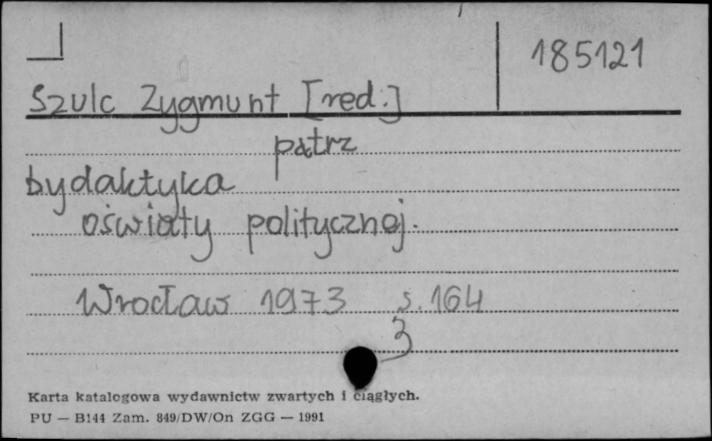 185121
Szulc Zygmunt [red.]
patrz
Dydaktyka
oświaty politycznej.
Wrocław 1973 s. 164
3
Karta katalogowa wydawnictw zwartych i ciągłych.
PU — B144 Zam. 849/DW/On ZGG — 1991